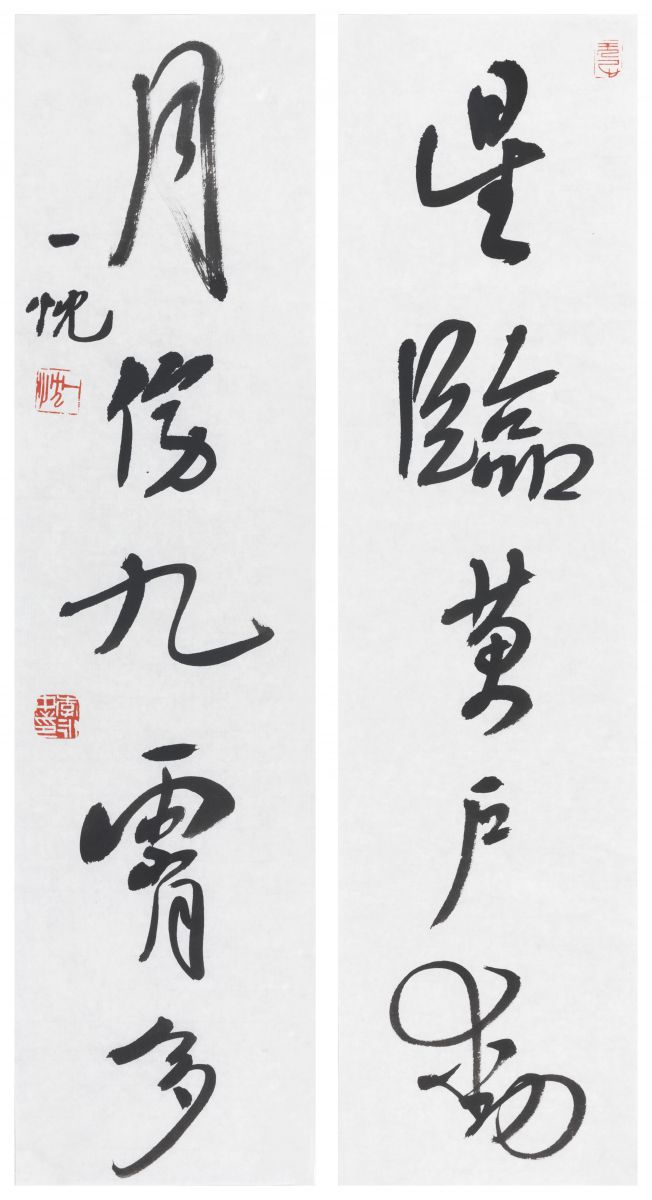 星臨萬戶動
月傍九霄多
一忱